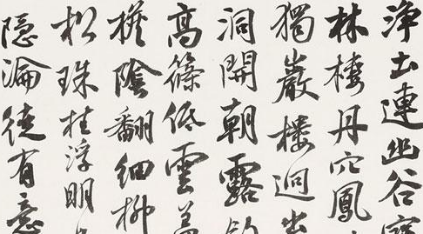 淨土連幽谷寶
林棲丹穴鳳
獨巖樓迥出
洞開朝露
高篠低雲蓋
機陰翻細柳
松珠桂浮明
隱淪徒有意